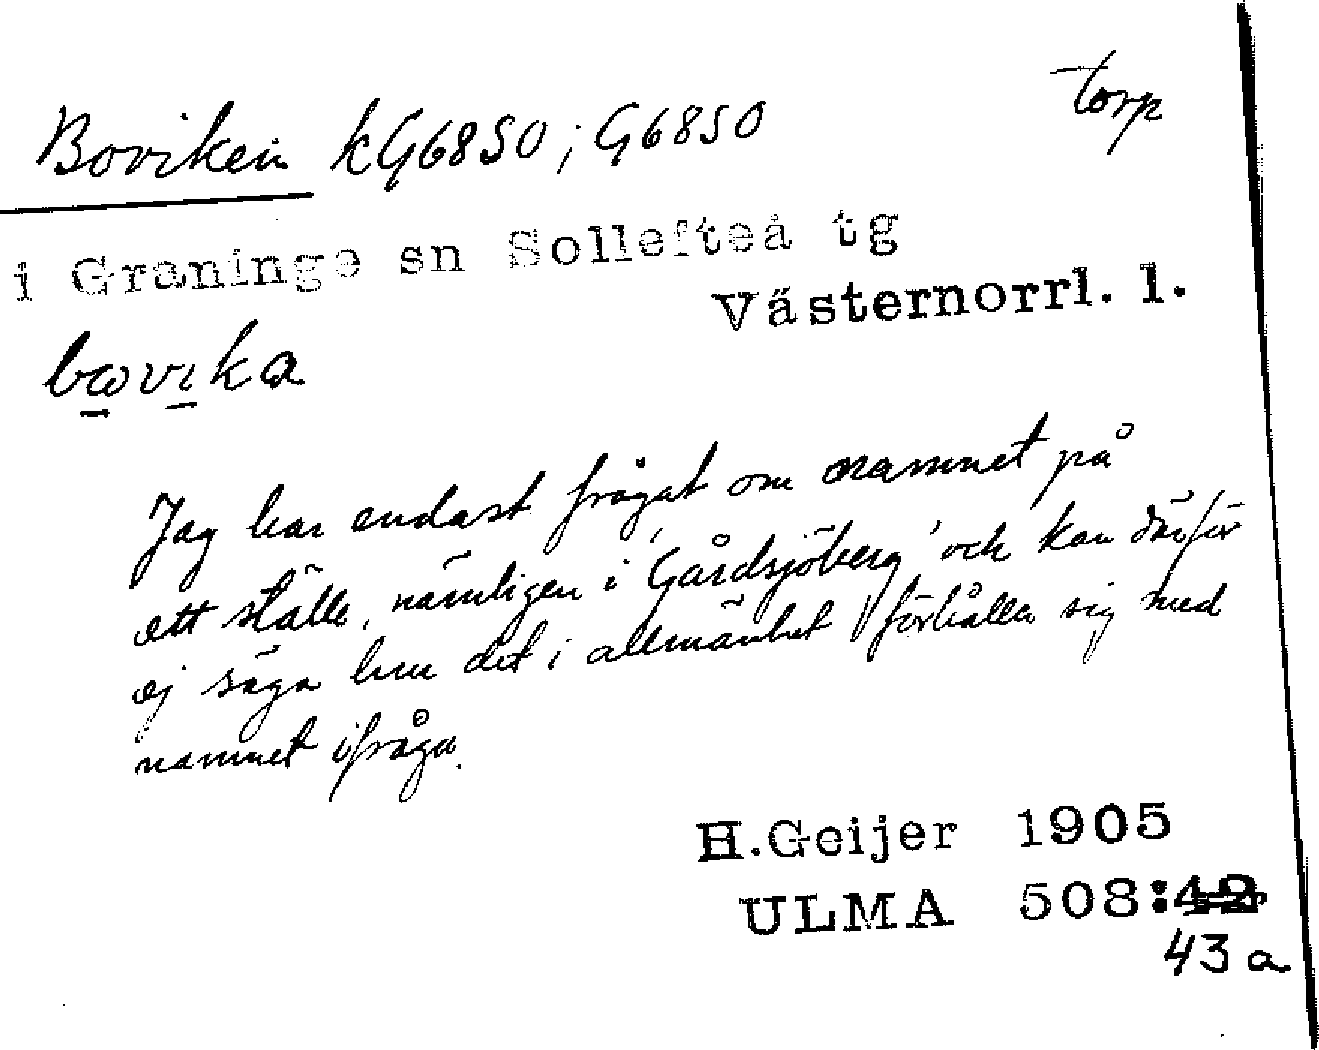 Boviken kG6850; G6850 torp
i Graninge sn Sollefteå tg
Västernorrl. l.
bovika
Jag har endast frågat om namnet på
ett ställe, nämligen i 'Gårdsjöberg' och kan därför
ej säga hur det i allmänhet förhåller sig med
namnet ifråga.
H.Geijer 1905
ULMA 508:42
43 a